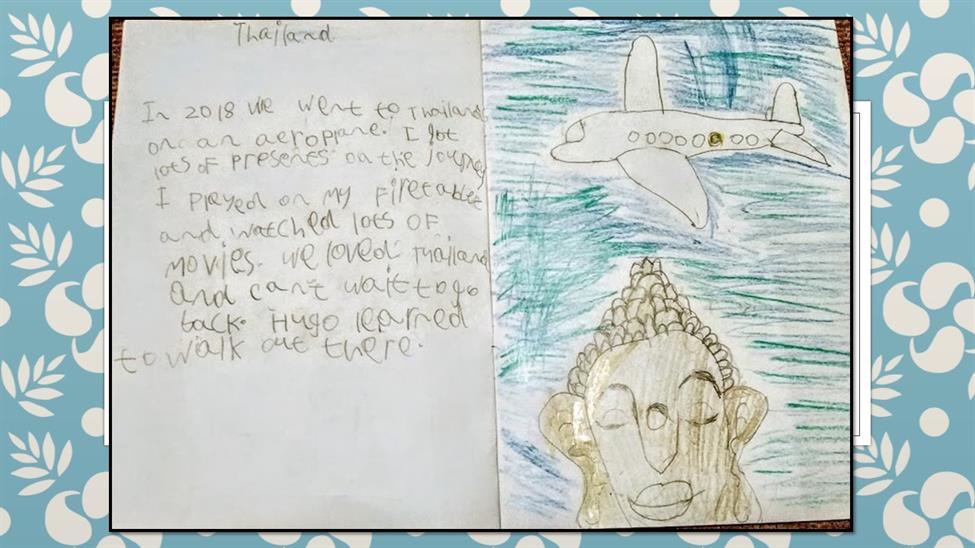 Thailand
In 2018 we went to Thailand
on an aeroplane. I got
lots of presents on the journey
I played on my firetablet
and watched lots of
movies. we loved Thailand
and can't wait to go
back. Hugo learned
to walk out there.